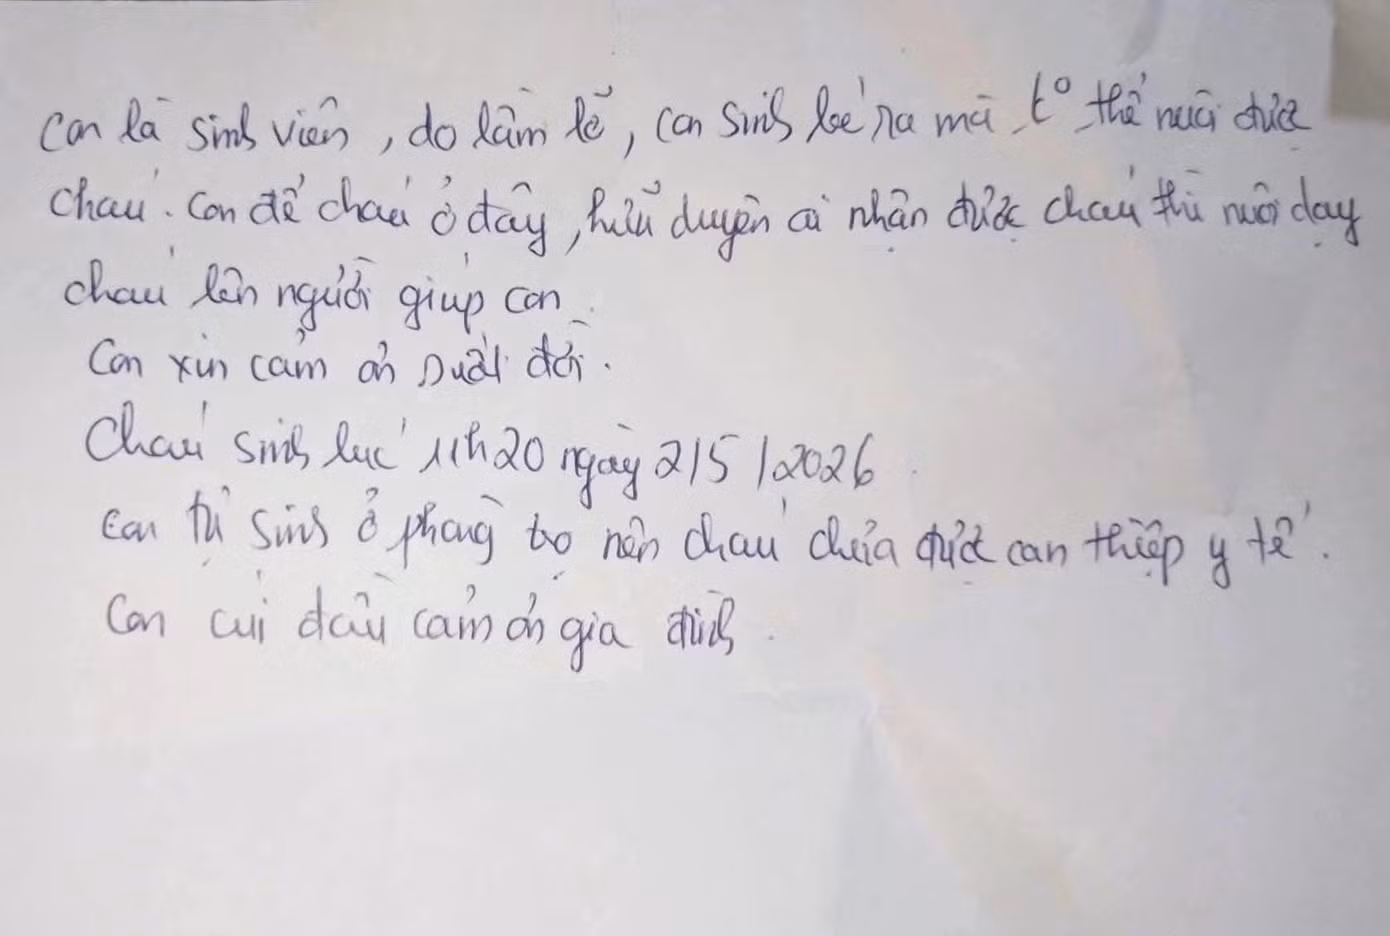 Con là sinh viên, do lầm lỡ, con sinh bé ra mà t° thể nuôi được
cháu. Con để cháu ở đây, hữu duyên ai nhận được cháu thì nuôi dạy
cháu lên người giúp con.
Con xin cảm ơn suốt đời.
Cháu sinh lúc 11h20 ngày 2/5/2026.
Con tự sinh ở phòng trọ nên cháu chưa được can thiệp y tế.
Con cúi đầu cảm ơn gia đình.